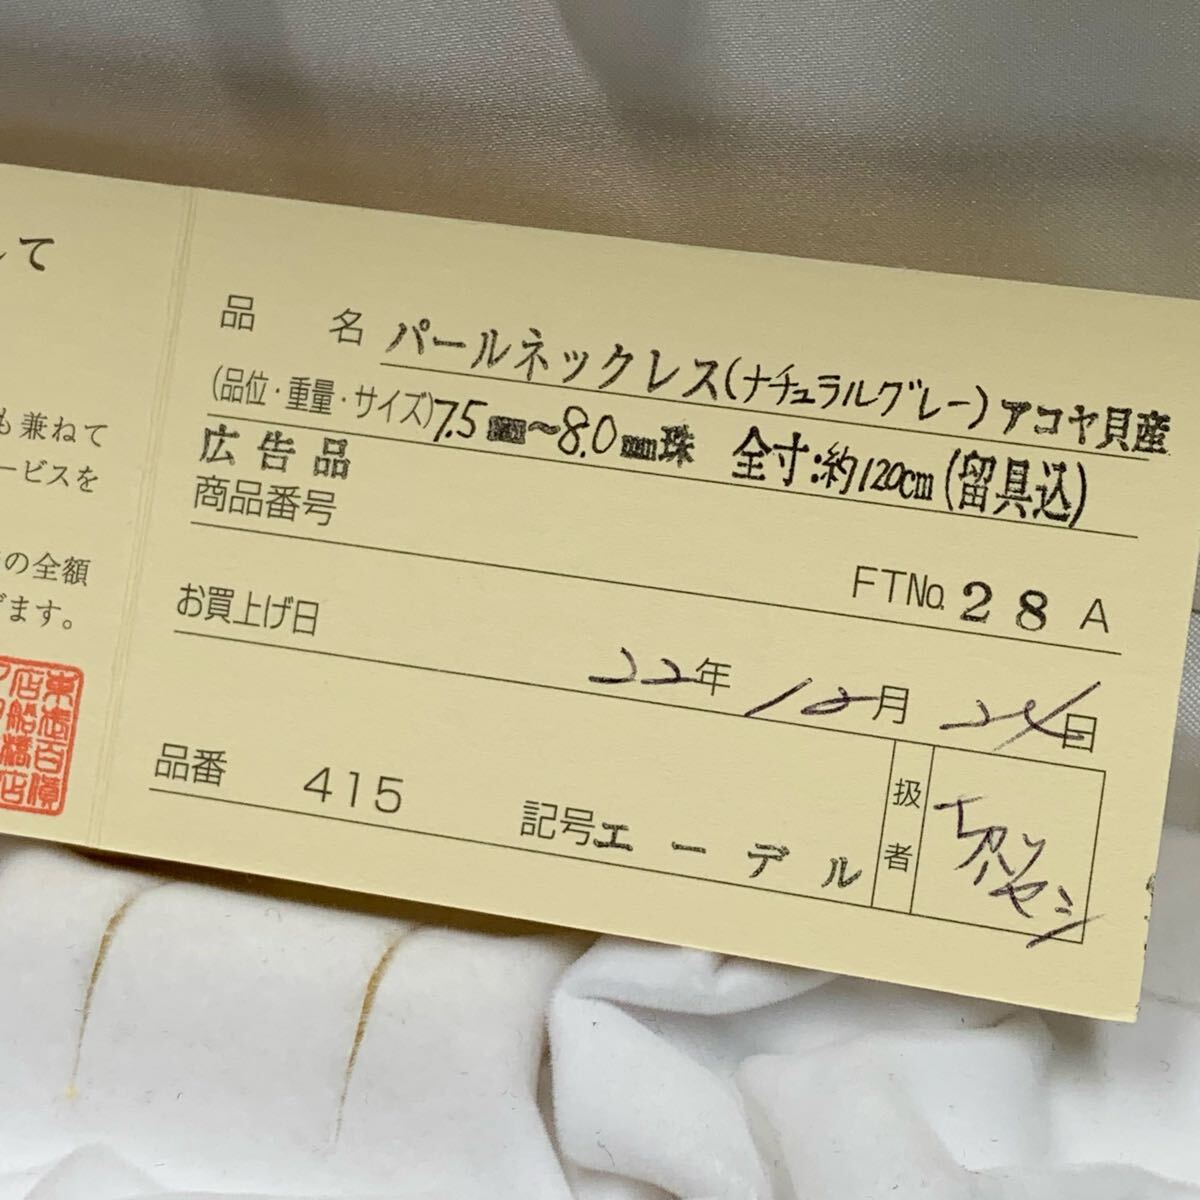 して
も兼ねて
ービスを
の全額
げます。
東武百貨
店船橋店
品名 パールネックレス(ナチュラルグレー)アコヤ貝産
(品位・重量・サイズ)7.5mm〜8.0mm珠 全寸:約120cm(留具込)
広告品
商品番号
FTNo. 28 A
お買上げ日
22年 12月 24日
品番 415 記号エーデル
扱者